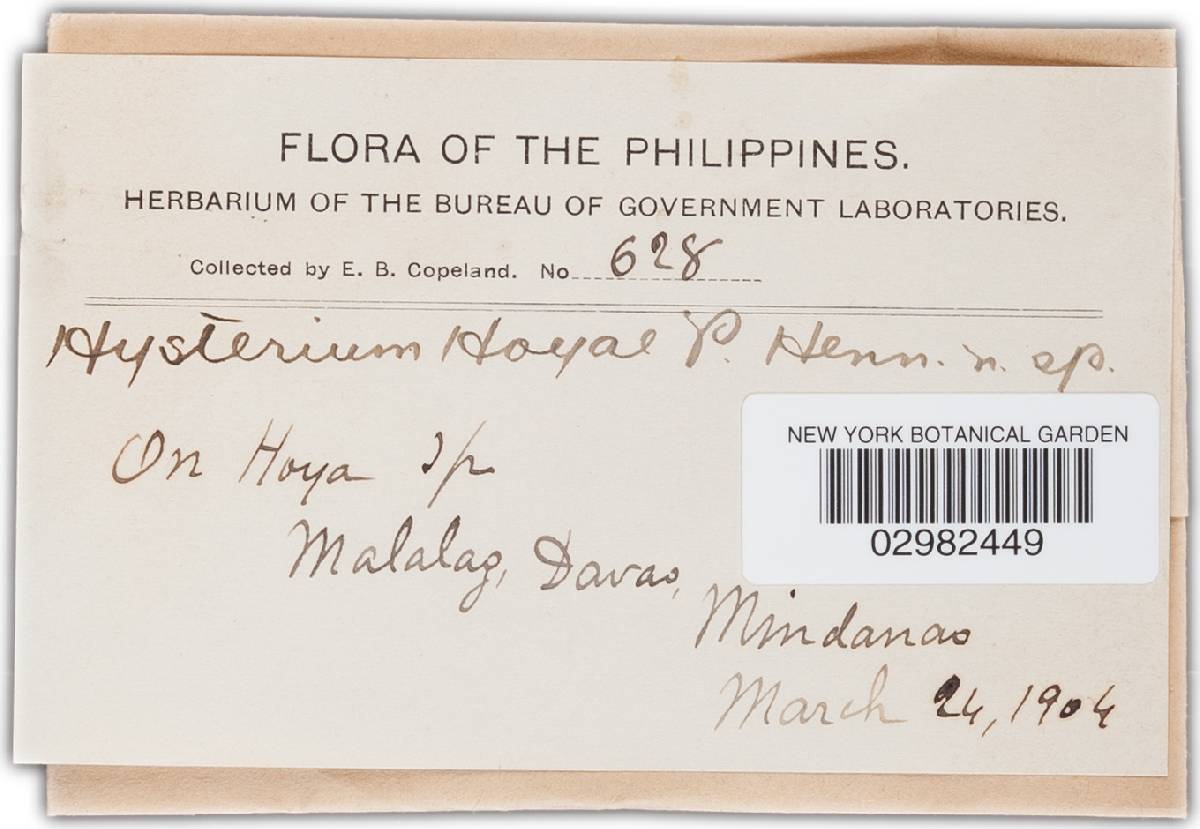 FLORA OF THE PHILIPPINES.
HERBARIUM OF THE BUREAU OF GOVERNMENT LABORATORIES.
Collected by E. B. Copeland. No. 628
Hysterium Hoyae P. Henn. n. sp.
On Hoya sp
NEW YORK BOTANICAL GARDEN
02982449
Malalag, Davao,
Mindanao
March 24, 1904